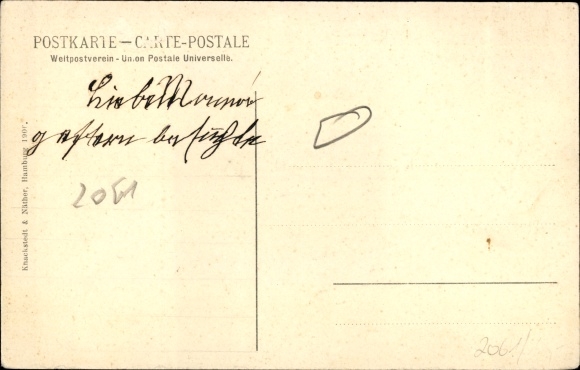 POSTKARTE — CARTE-POSTALE
Weltpostverein - Union Postale Universelle.
Liebe Mama
gestern besuchte
2061
Knackstedt & Näther, Hamburg 190
2061